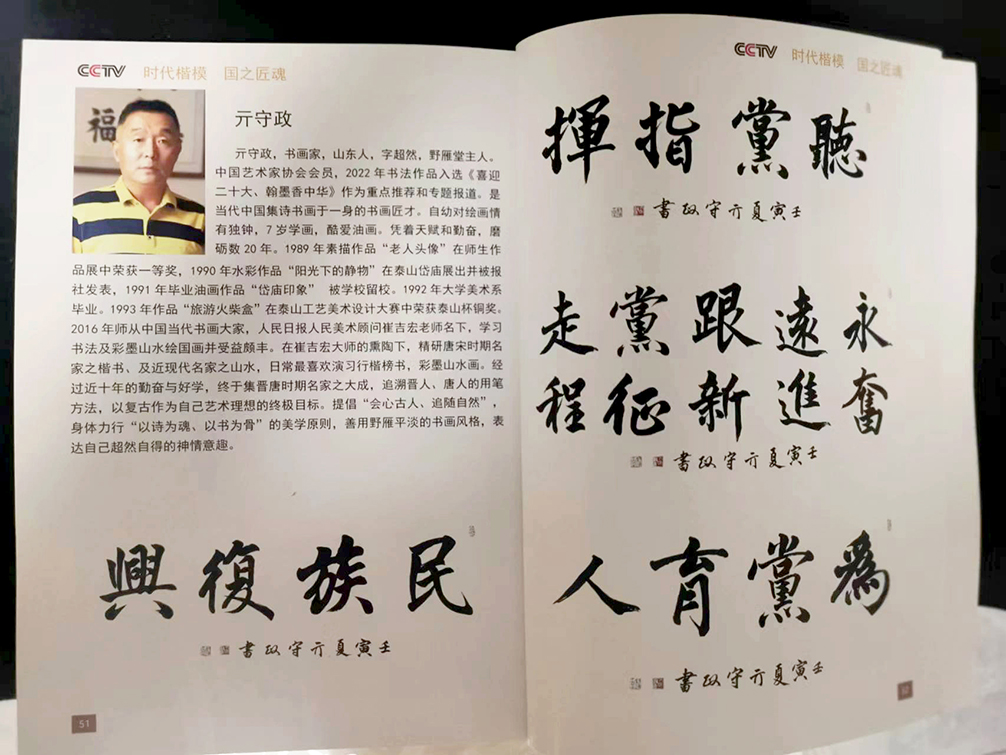 CCTV 时代楷模 国之匠魂
福
亓守政
亓守政，书画家，山东人，字超然，野雁堂主人。
中国艺术家协会会员，2022年书法作品入选《喜迎
二十大、翰墨香中华》作为重点推荐和专题报道。是
当代中国集诗书画于一身的书画匠才。自幼对绘画情
有独钟，7岁学画，酷爱油画。凭着天赋和勤奋，磨
砺数20年。1989年素描作品“老人头像”在师生作
品展中荣获一等奖，1990年水彩作品“阳光下的静物”在泰山岱庙展出并被报
社发表，1991年毕业油画作品“岱庙印象” 被学校留校。1992年大学美术系
毕业。1993年作品“旅游火柴盒”在泰山工艺美术设计大赛中荣获泰山杯铜奖。
2016年师从中国当代书画大家，人民日报人民美术顾问崔吉宏老师名下，学习
书法及彩墨山水绘国画并受益颇丰。在崔吉宏大师的熏陶下，精研唐宋时期名
家之楷书、及近现代名家之山水，日常最喜欢演习行楷榜书，彩墨山水画。经
过近十年的勤奋与好学，终于集晋唐时期名家之大成，追溯晋人、唐人的用笔
方法，以复古作为自己艺术理想的终极目标。提倡“会心古人、追随自然”，
身体力行“以诗为魂、以书为骨”的美学原则，善用野雁平淡的书画风格，表
达自己超然自得的神情意趣。
民族復興
壬寅夏亓守政書
51
CCTV 时代楷模 国之匠魂
聽黨指揮
壬寅夏亓守政書
永遠跟黨走
奮進新征程
壬寅夏亓守政書
爲黨育人
壬寅夏亓守政書